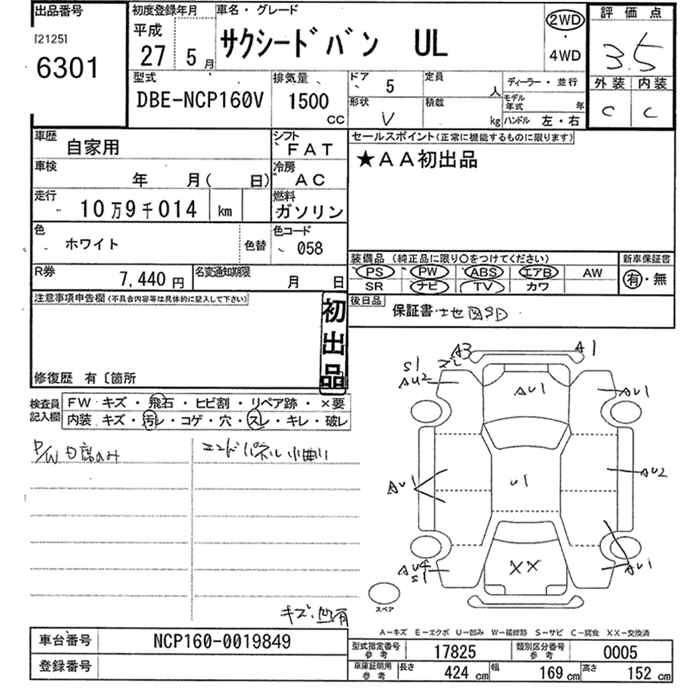 出品番号
[2125]
6301
初度登録年月
平成
27 5月
車名・グレード
サクシードバン UL
2WD
・
4WD
評価点
3.5
外装 内装
C C
型式
DBE-NCP160V
排気量
1500
CC
ドア 5
定員 人
形状 V
積載 kg
ディーラー・並行
モデル年式 年
ハンドル 左・右
車歴 自家用
シフト FAT
車検 年 月( 日)
冷房 AC
走行 10万9千014 km
燃料 ガソリン
色 ホワイト 色替
色コード 058
R券 7,440円
名変通知期限 月 日
セールスポイント(正常に機能するものに限ります)
★AA初出品
装備品(純正品に限り○をつけてください)
PS PW ABS エアB AW
SR ナビ TV カワ
新車保証書
有・無
後日品 保証書・
注意事項申告欄(不具合内容等は具体的に記入して下さい)
初出品
修復歴 有〔箇所
検査員記入欄
FW キズ・飛石・ヒビ割・リペア跡・×要
内装 キズ・汚レ・コゲ・穴・スレ・キレ・破レ
エンドパネル小曲り
A3 A1
S1
AU2
AU1
AU1
AU1
U1
AU2
AU4
S1
XX
AU1
スペア
A-キズ E-エクボ U-凹み W-補修跡 S-サビ C-腐食 XX-交換済
車台番号 NCP160-0019849
登録番号
型式指定番号 参考 17825
類別区分番号 参考 0005
車庫証明用 参考 長さ 424cm 幅 169cm 高さ 152cm